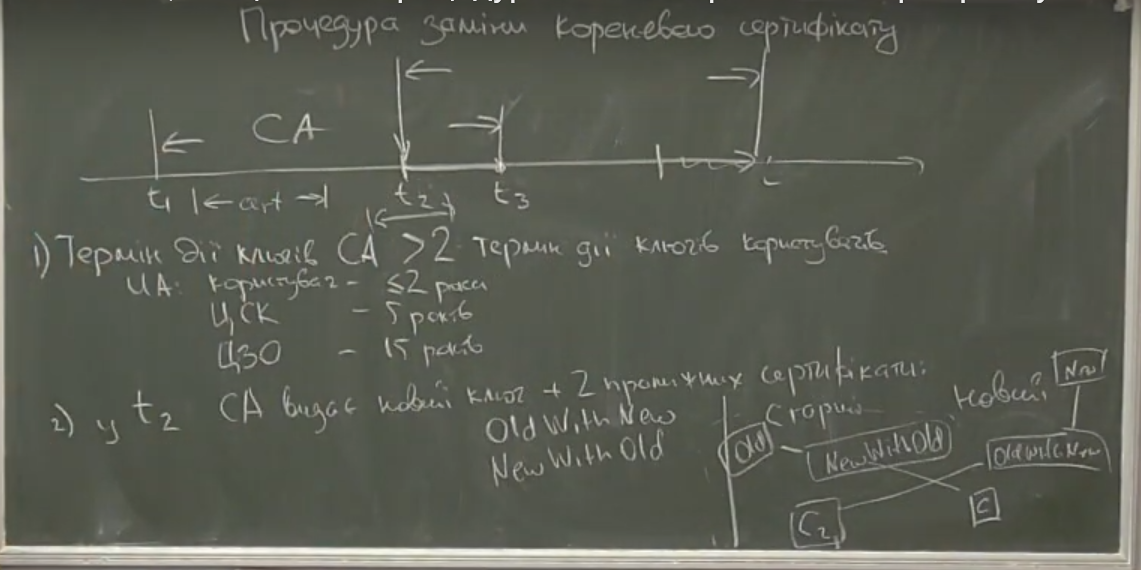 Процедура заміни кореневого сертифікату
CA
t₁ |← cert →| t₂ t₃
1) Термін дії ключів CA > 2 термін дії ключів користувачів
UA: користувач - ≤2 роки
ЦСК - 5 років
ЦЗО - 15 років
2) у t₂ CA видає новий ключ + 2 проміжних сертифікати:
OldWithNew
NewWithOld
Старий Новий New
Old NewWithOld OldWithNew
C₂ C